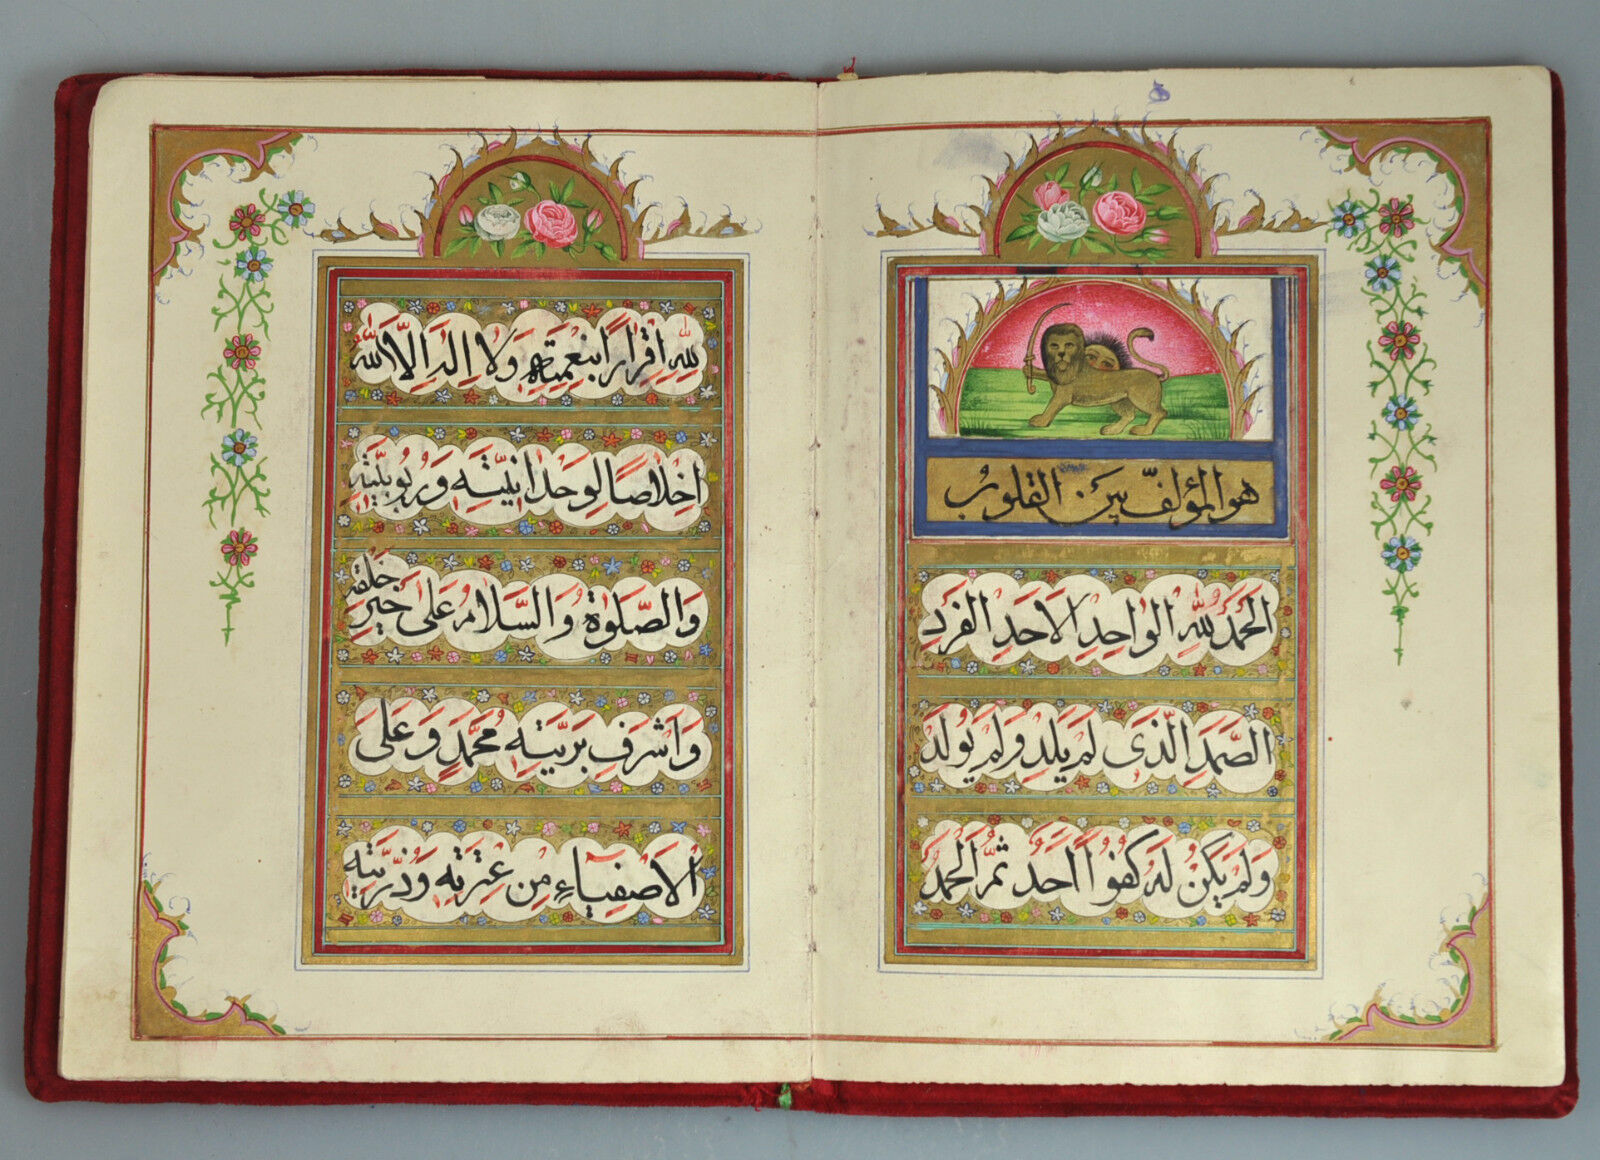 هو المؤلّف بین القلوب
الحَمدُ للهِ الواحِدِ الاَحَدِ الفَردِ
الصَّمَدِ الَّذی لَم یَلِد وَلَم یُولَد
وَلَم یَکُن لَهُ کُفُواً اَحَدٌ ثُمَّ الحَمدُ
للهِ اِقراراً بِنِعمَتِهِ وَلا اِلهَ اِلاَّ اللهُ
اِخلاصاً لِوَحدانِیَّتِهِ وَرُبُوبِیَّتِهِ
وَالصَّلوةُ وَالسَّلامُ عَلی خَیرِ خَلقِهِ
وَاَشرَفِ بَرِیَّتِهِ مُحَمَّدٍ وَعَلَی
الاَصفِیاءِ مِن عِترَتِهِ وَذُرِّیَّتِهِ